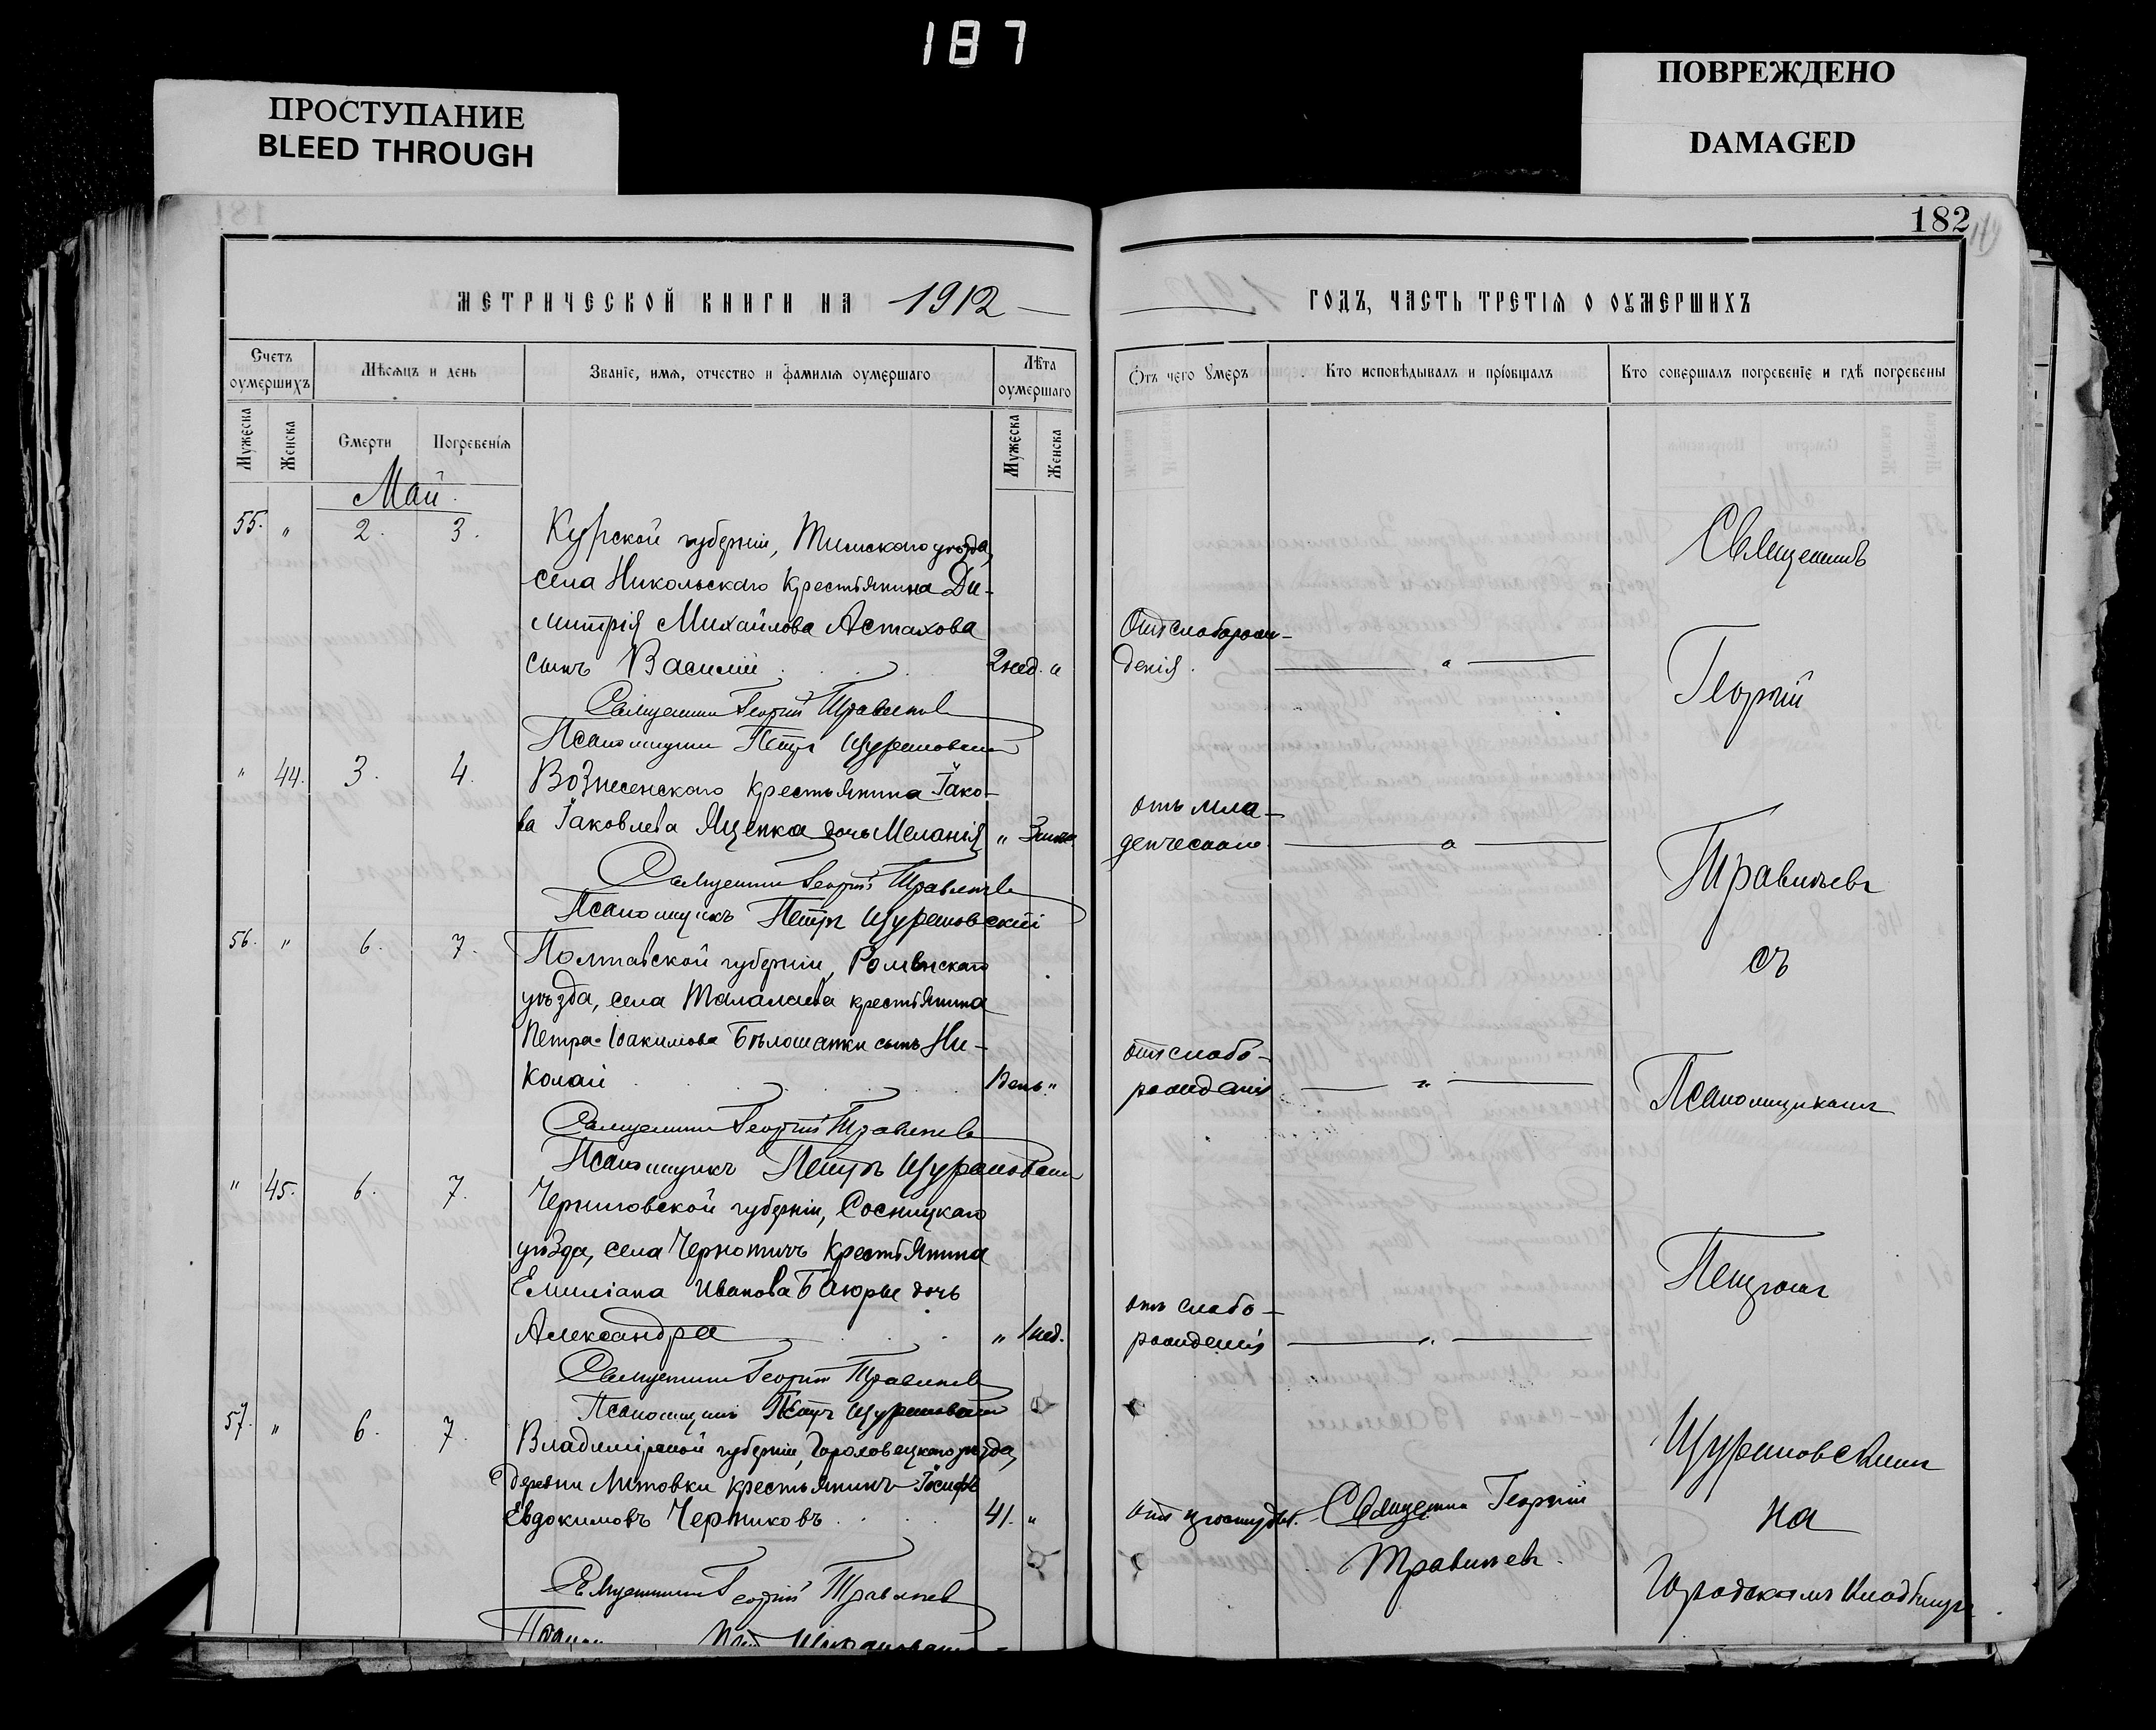 187
ПРОСТУПАНИЕ
BLEED THROUGH
ПОВРЕЖДЕНО
DAMAGED
182
МЕТРИЧЕСКОЙ КНИГИ НА 1912
ГОДЪ, ЧАСТЬ ТРЕТІѦ О ОУМЕРШИХЪ
Счетъ оумершихъ
Мѣсяцъ и день
Званіе, имя, отчество и фамилія оумершаго
Лѣта оумершаго
Отъ чего умеръ
Кто исповѣдывалъ и пріобщалъ
Кто совершалъ погребеніе и гдѣ погребены
Мужеска
Женска
Смерти
Погребенія
Мужеска
Женска
Май.
55. " 2. 3. Курской губерніи, Тимскаго уѣзда,
села Никольскаго крестьянина Ди-
митрія Михайлова Астахова
сынъ Василій 2 нед. "
Отъ слаборож-
денія.
Священникъ Георгій Травиневъ
Псаломщикъ Петръ Щурановскій
" 44. 3. 4. Вознесенскаго крестьянина Іако-
ва Іаковлева Яценка дочь Меланія "
отъ мла-
денческаго
Священникъ Георгій Травиневъ
Псаломщикъ Петръ Щурановскій
56. " 6. 7. Полтавской губерніи, Роменскаго
уѣзда, села Талалаевка крестьянина
Петра Іоакимова Бѣлошапки сынъ Ни-
колай 1 день "
отъ слабо-
рожденія
Священникъ Георгій Травиневъ
Псаломщикъ Петръ Щурановскій
" 45. 6. 7. Черниговской губерніи, Сосницкаго
уѣзда, села Чернотичъ крестьянина
Емиліана Иванова дочь
Александра " 1 нед.
отъ слабо-
рожденія
Священникъ Георгій Травиневъ
Псаломщикъ Петръ Щурановскій
57. " 6. 7. Владимірской губерніи, Гороховецкаго уѣзда,
деревни Литовки крестьянинъ Іосифъ
Евдокимовъ Черниковъ 41. "
отъ простуды. Священникъ Георгій
Травиневъ.
Священникъ Георгій Травиневъ
Священникъ
Георгій
Травиневъ
съ
Псаломщикомъ
Петромъ
Щурановскимъ
на
Городскомъ кладбищѣ.